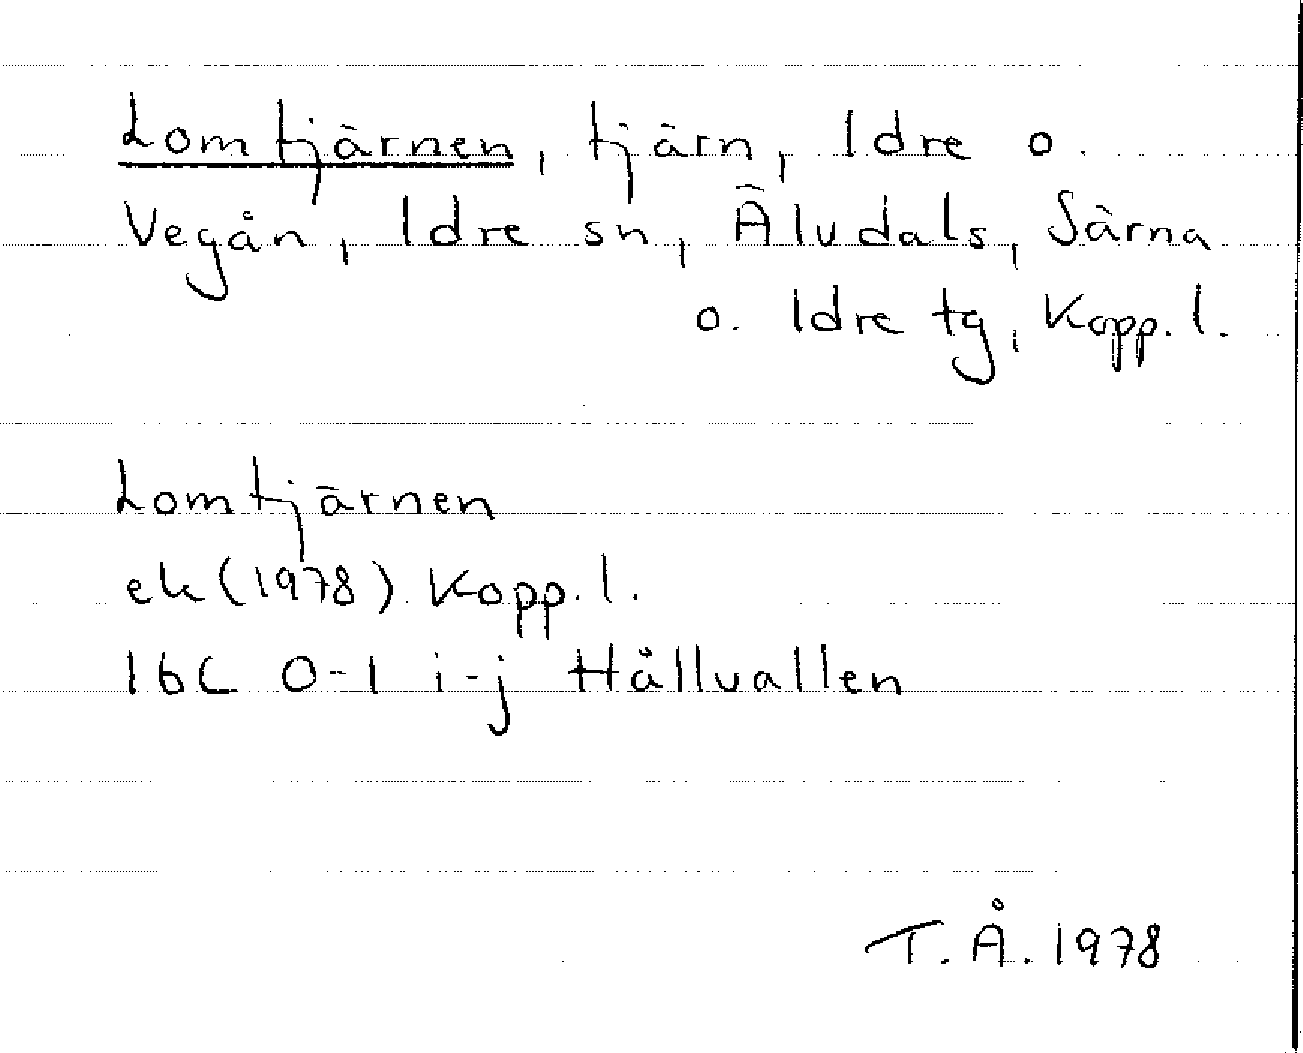 Lomtjärnen, tjärn, Idre o.
Vegån, Idre sn, Älvdals, Särna
o. Idre tg, Kopp. l.
Lomtjärnen
ek (1978) Kopp. l.
16C 0-1 i-j Hållvallen
T. Å. 1978